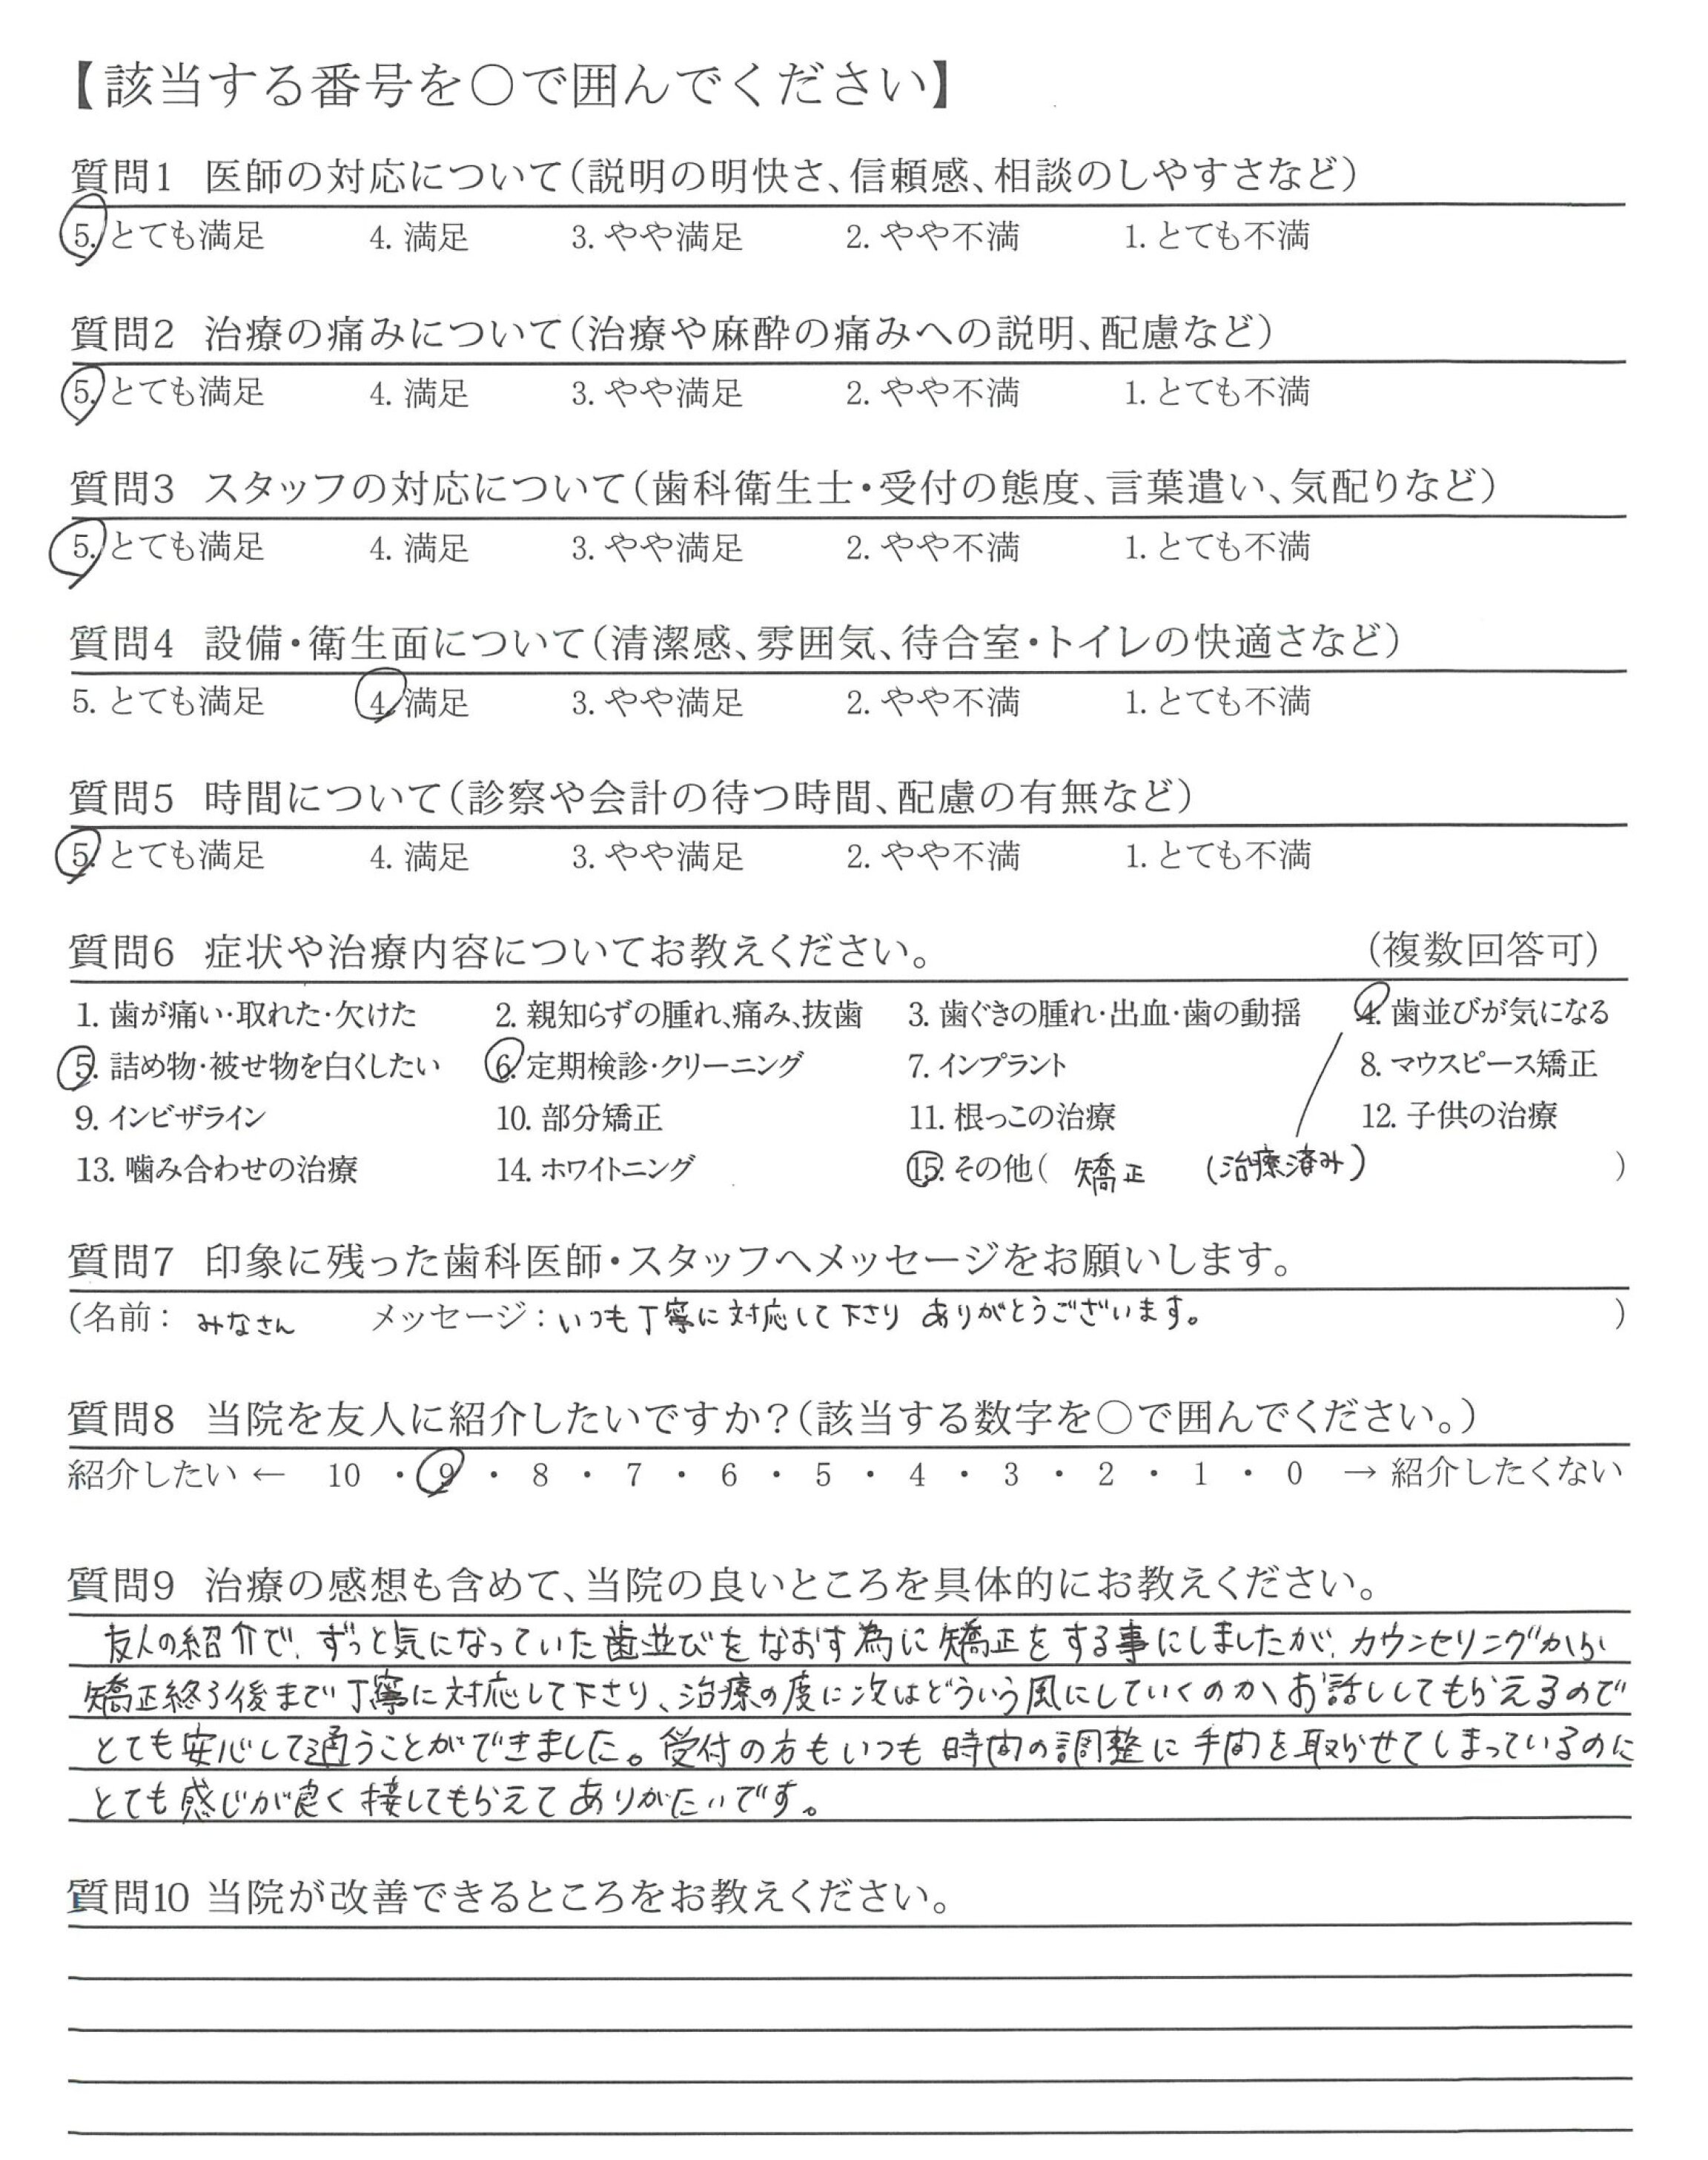 【該当する番号を○で囲んでください】
質問1 医師の対応について(説明の明快さ、信頼感、相談のしやすさなど)
5. とても満足 4. 満足 3. やや満足 2. やや不満 1. とても不満
質問2 治療の痛みについて(治療や麻酔の痛みへの説明、配慮など)
5. とても満足 4. 満足 3. やや満足 2. やや不満 1. とても不満
質問3 スタッフの対応について(歯科衛生士・受付の態度、言葉遣い、気配りなど)
5. とても満足 4. 満足 3. やや満足 2. やや不満 1. とても不満
質問4 設備・衛生面について(清潔感、雰囲気、待合室・トイレの快適さなど)
5. とても満足 4. 満足 3. やや満足 2. やや不満 1. とても不満
質問5 時間について(診察や会計の待つ時間、配慮の有無など)
5. とても満足 4. 満足 3. やや満足 2. やや不満 1. とても不満
質問6 症状や治療内容についてお教えください。 (複数回答可)
1. 歯が痛い・取れた・欠けた 2. 親知らずの腫れ、痛み、抜歯 3. 歯ぐきの腫れ・出血・歯の動揺 4. 歯並びが気になる
5. 詰め物・被せ物を白くしたい 6. 定期検診・クリーニング 7. インプラント 8. マウスピース矯正
9. インビザライン 10. 部分矯正 11. 根っこの治療 12. 子供の治療
13. 噛み合わせの治療 14. ホワイトニング 15. その他( 矯正 (治療済み) )
質問7 印象に残った歯科医師・スタッフへメッセージをお願いします。
(名前: みなさん メッセージ:いつも丁寧に対応して下さり ありがとうございます。 )
質問8 当院を友人に紹介したいですか?(該当する数字を○で囲んでください。)
紹介したい ← 10 ・ 9 ・ 8 ・ 7 ・ 6 ・ 5 ・ 4 ・ 3 ・ 2 ・ 1 ・ 0 → 紹介したくない
質問9 治療の感想も含めて、当院の良いところを具体的にお教えください。
友人の紹介で、ずっと気になっていた歯並びをなおす為に矯正をする事にしましたが、カウンセリングから
矯正終了後まで丁寧に対応して下さり、治療の度に次はどういう風にしていくのかお話ししてもらえるので
とても安心して通うことができました。受付の方もいつも時間の調整に手間を取らせてしまっているのに
とても感じが良く接してもらえてありがたいです。
質問10 当院が改善できるところをお教えください。